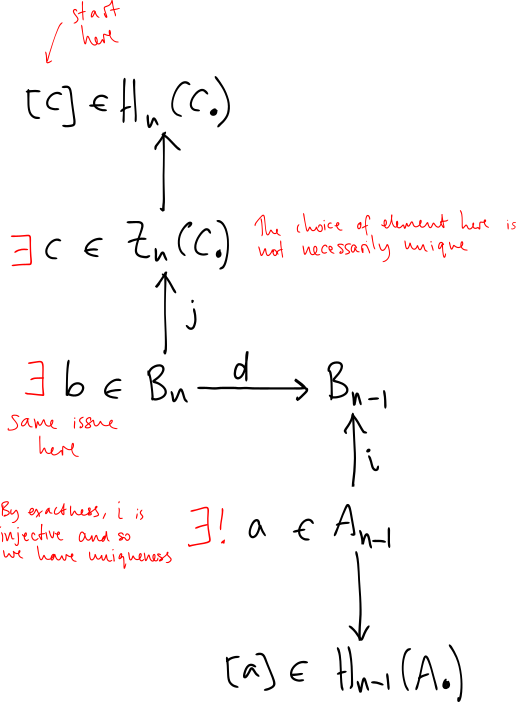 start
here
[c] ∈ Hₙ(C.)
∃ c ∈ Zₙ(C.)
The choice of element here is
not necessarily unique
j
∃ b ∈ Bₙ
d
Bₙ₋₁
Same issue
here
i
By exactness, i is
injective and so
we have uniqueness
∃! a ∈ Aₙ₋₁
[a] ∈ Hₙ₋₁(A.)